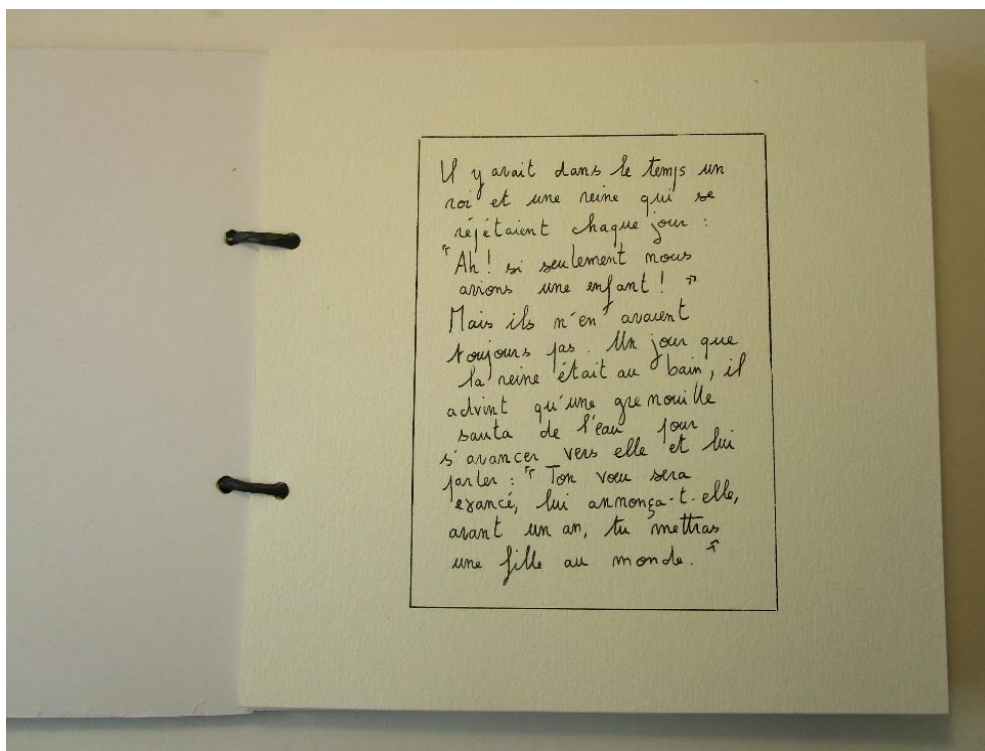 Il y avait dans le temps un
roi et une reine qui se
répétaient chaque jour :
"Ah ! si seulement nous
avions une enfant ! "
Mais ils n'en avaient
toujours pas. Un jour que
la reine était au bain, il
advint qu'une grenouille
sauta de l'eau pour
s'avancer vers elle et lui
parler : " Ton vœu sera
exancé, lui annonça-t-elle,
avant un an, tu mettras
une fille au monde. "